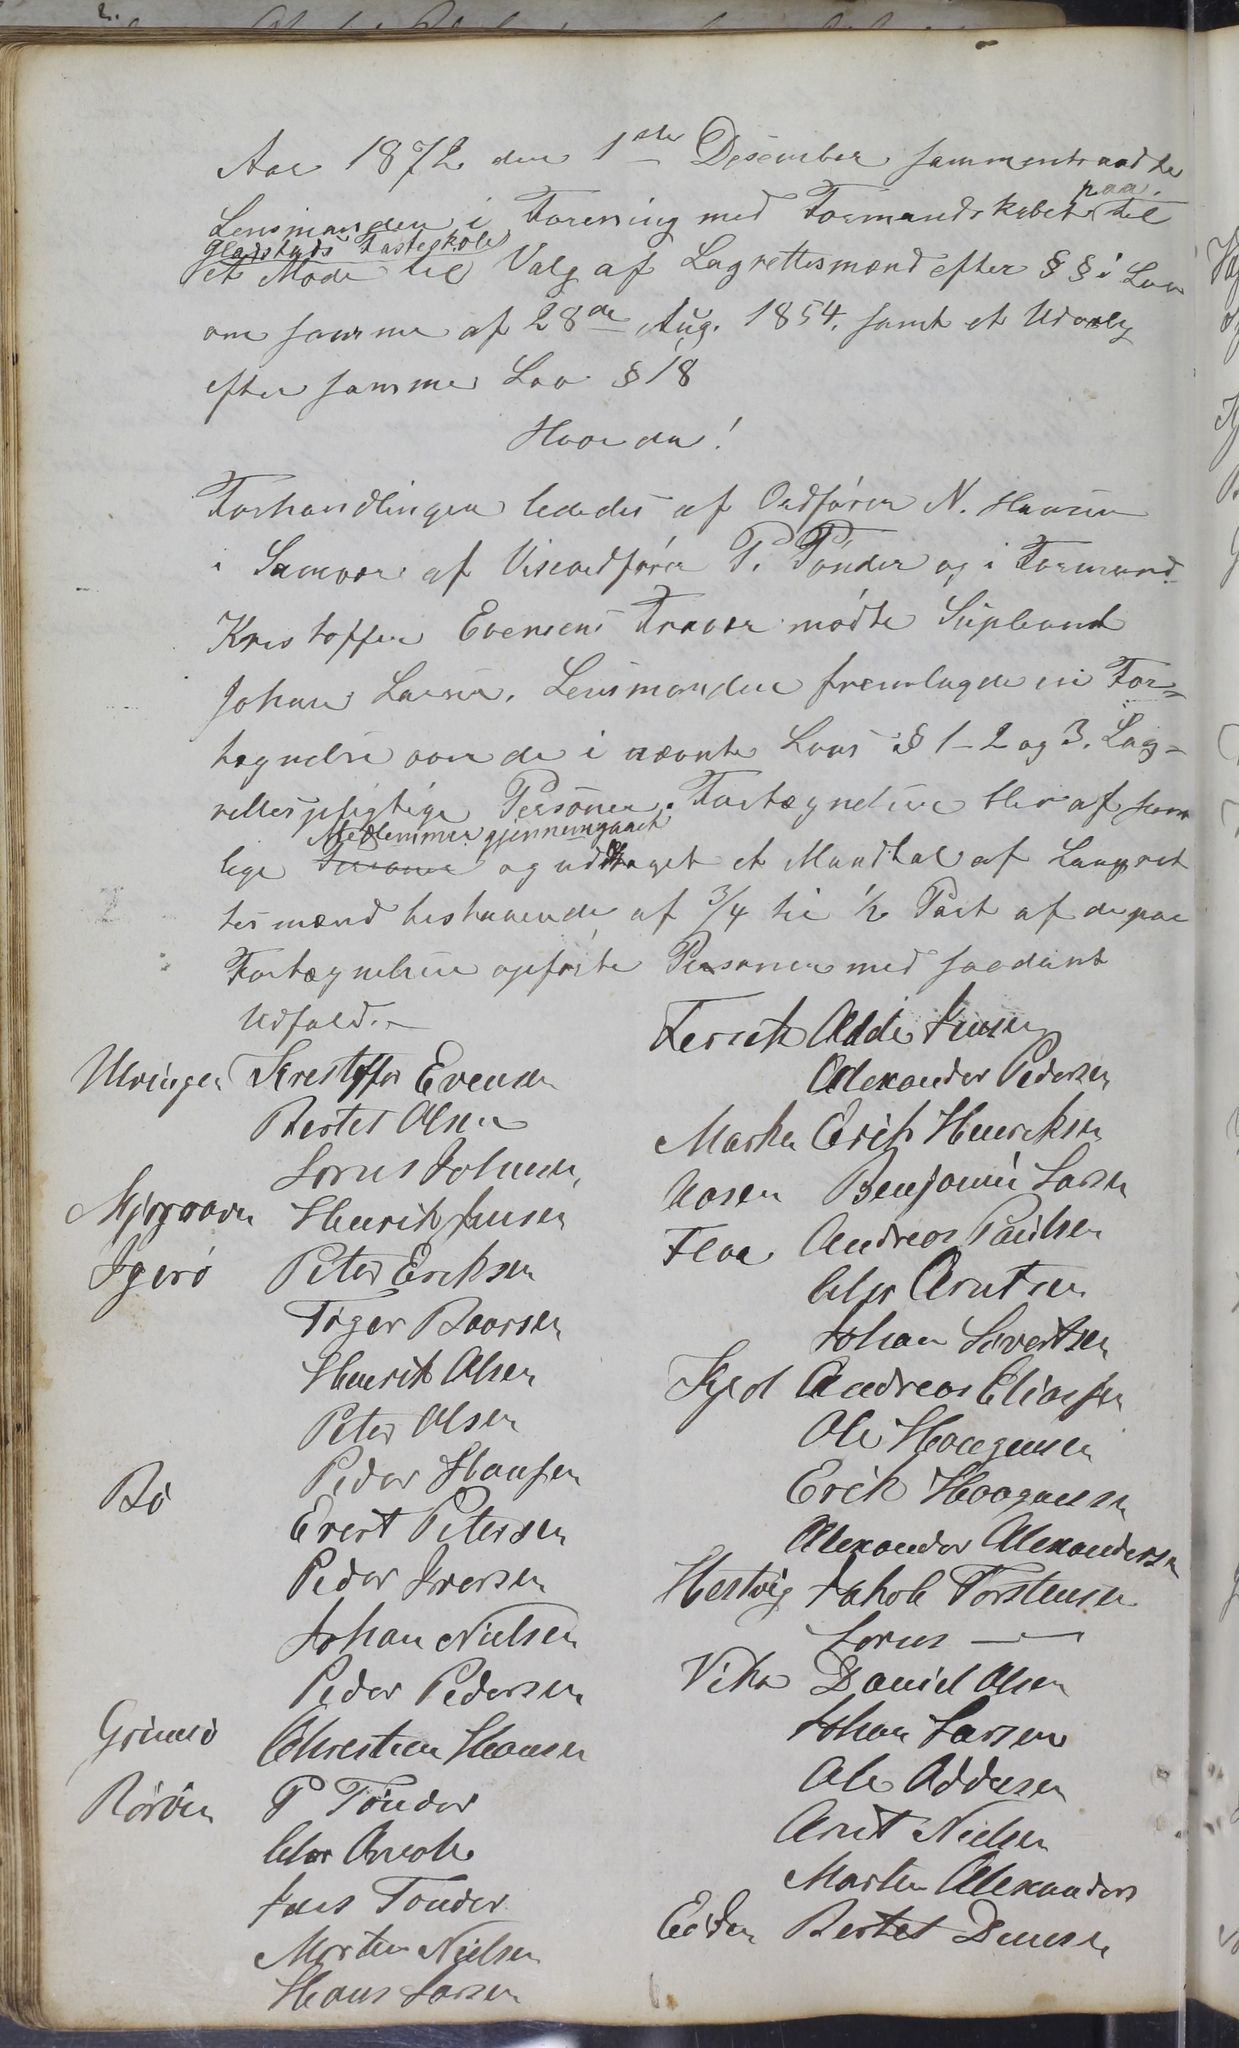 Aar 1872 den 1ste Desember sammentraadte
Lensmanden i Forening med Formandskabet paa til
Gladstads Fasteskole
et Møde til Valg af Lagrettesmænd efter §§ i Lov
om samme af 28de Aug. 1854. samt et Udvalg
efter samme Lov § 18
Hvor da!
Forhandlingen lededes af Ordfører N. Hansen
i Samvær af Viseordfører P. Tønder og i Formand
Kristoffer Evensens Fravær mødte Supleant
Johan Larsen. Lensmanden fremlagde en For-
tegnelse over de i nævnte Lovs § 1-2 og 3. Lag-
rettespligtige Personer. Fortægnelsen blev af sam
Medlemmer gjennemgaaet
lige og uddtaget et Mandtal af Laugret
tesmænd bestaaende af 3/4 til 1/2 Part af de paa
Fortægnelsen opførte Personer med saadant
Udfald.
Ulvingen Krestoffer Evensen
Bertel Olsen
Lorns Johnsen
Henrik Jensen
Igerø Peter Eriksen
Tøger Baarsen
Henrik Olsen
Peter Olsen
Bø Peder Hansen
Evert Petersen
Peder Iversen
Johan Nielsen
Peder Pedersen
Grimsø Christian Hansen
Rørøen P Tønder
Jens Tønder
Morten Nielsen
Hans Larsen
Adde Jensen
Alexander Pedersen
Marken Erik Henriksen
Aasen Benjamin Larsen
Floa Andreas Paulsen
Arntsen
Johan Sivertsen
Kjul Andreas Eliassen
Ole Haagensen
Erik Haagensen
Alexander Alexandersen
Hestvig Jakob Torstensen
Lorns —
Vika Daniel Olsen
Johan Larsen
Ole Addesen
Arnt Nielsen
Morten Alexanders
Bertel Densen